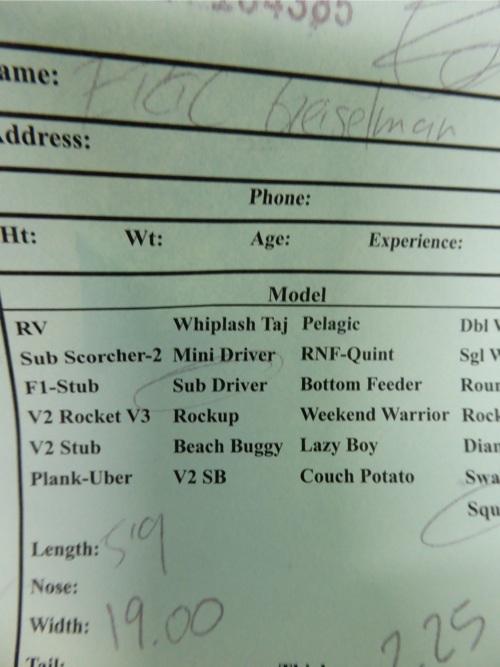 204365
ame: Eric Geiselman
Address:
Phone:
Ht: Wt: Age: Experience:
Model
RV Whiplash Taj Pelagic Dbl
Sub Scorcher-2 Mini Driver RNF-Quint Sgl
F1-Stub Sub Driver Bottom Feeder Roun
V2 Rocket V3 Rockup Weekend Warrior Rock
V2 Stub Beach Buggy Lazy Boy Dian
Plank-Uber V2 SB Couch Potato Swa
Squ
Length: 5'9
Nose:
Width: 19.00 2.25
Tail: